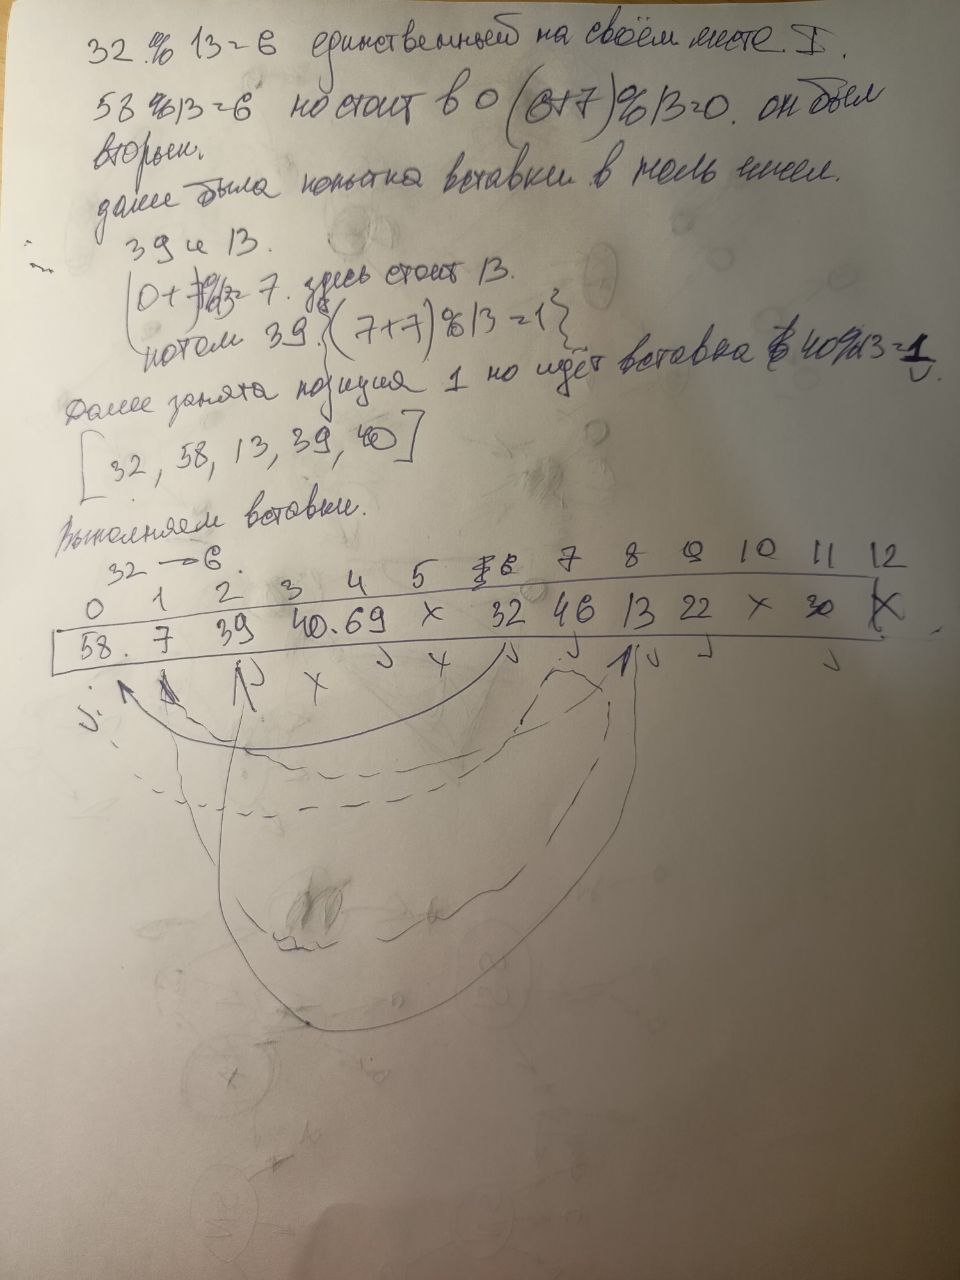 32 % 13 = 6 единственный на своём месте I.
58 % 13 = 6 но стоит в 0 (6+7)%13=0. он был
вторым.
далее была попытка вставки в ноль чисел.
39 и 13.
(0+7)%13= 7. здесь стоит 13.
потом 39. {(7+7)%13=1}
Далее занята позиция 1 но идёт вставка 40%13=1
[32, 58, 13, 39, 40]
Выполняем вставки.
32 → 6.
0 1 2 3 4 5 6 7 8 9 10 11 12
58. 7 39 40. 69 x 32 46 13 22 x 30 x